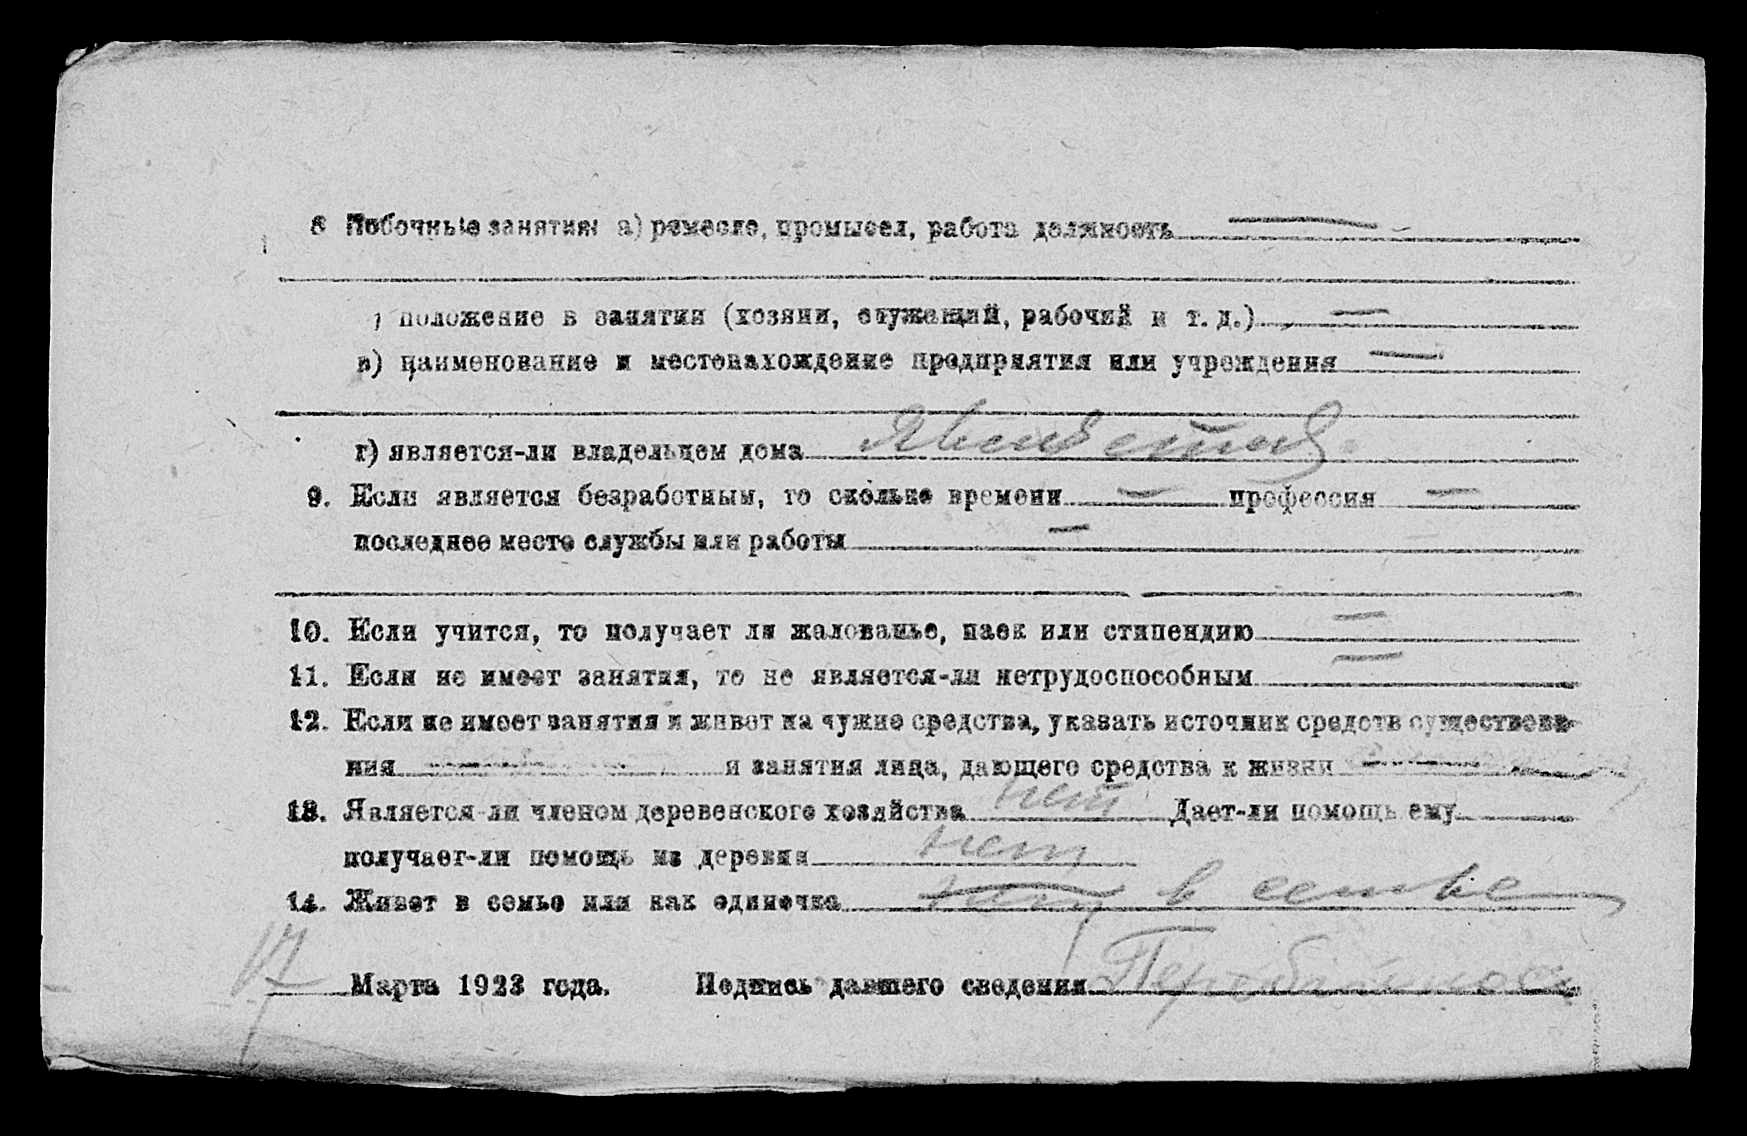 8 Побочные занятия: а) ремесло, промысел, работа должность —
) положение в занятии (хозяин, служащий, рабочий и т. д.) —
в) наименование и местонахождение предприятия или учреждения —
г) является-ли владельцем дома
9. Если является безработным, то сколько времени — профессия —
последнее место службы или работы —
10. Если учится, то получает ли жалованье, паек или стипендию —
11. Если не имеет занятия, то не является-ли нетрудоспособным —
12. Если не имеет занятия и живет на чужие средства, указать источник средств существова-
ния и занятия лица, дающего средства к жизни
13. Является-ли членом деревенского хозяйства нет Дает-ли помощь ему
получает-ли помощь из деревни нет
14. Живет в семье или как одиночка в семье
17 Марта 1923 года. Подпись давшего сведения